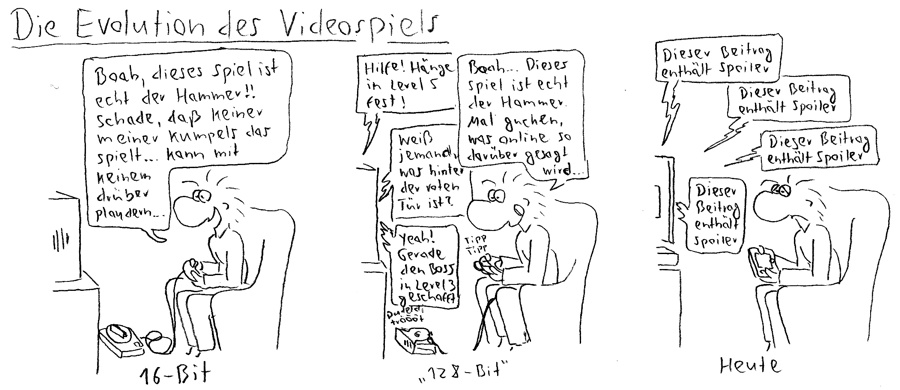 Die Evolution des Videospiels
Boah, dieses Spiel ist
echt der Hammer!!
Schade, daß keiner
meiner Kumpels das
spielt... kann mit
keinem
drüber
plaudern...
16-Bit
Hilfe! Hänge
in Level 5
fest!
Weiß
jemand,
was hinter
der roten
Tür ist?
Yeah!
Gerade
den Boss
in Level 3
geschafft
Boah... Dieses
Spiel ist echt
der Hammer.
Mal gucken,
was online so
darüber gesagt
wird...
Tipp
Tipp
Düdeldi
tröööt
„128-Bit"
Dieser Beitrag
enthält Spoiler
Dieser Beitrag
enthält Spoiler
Dieser Beitrag
enthält Spoiler
Dieser
Beitrag
enthält
Spoiler
Heute